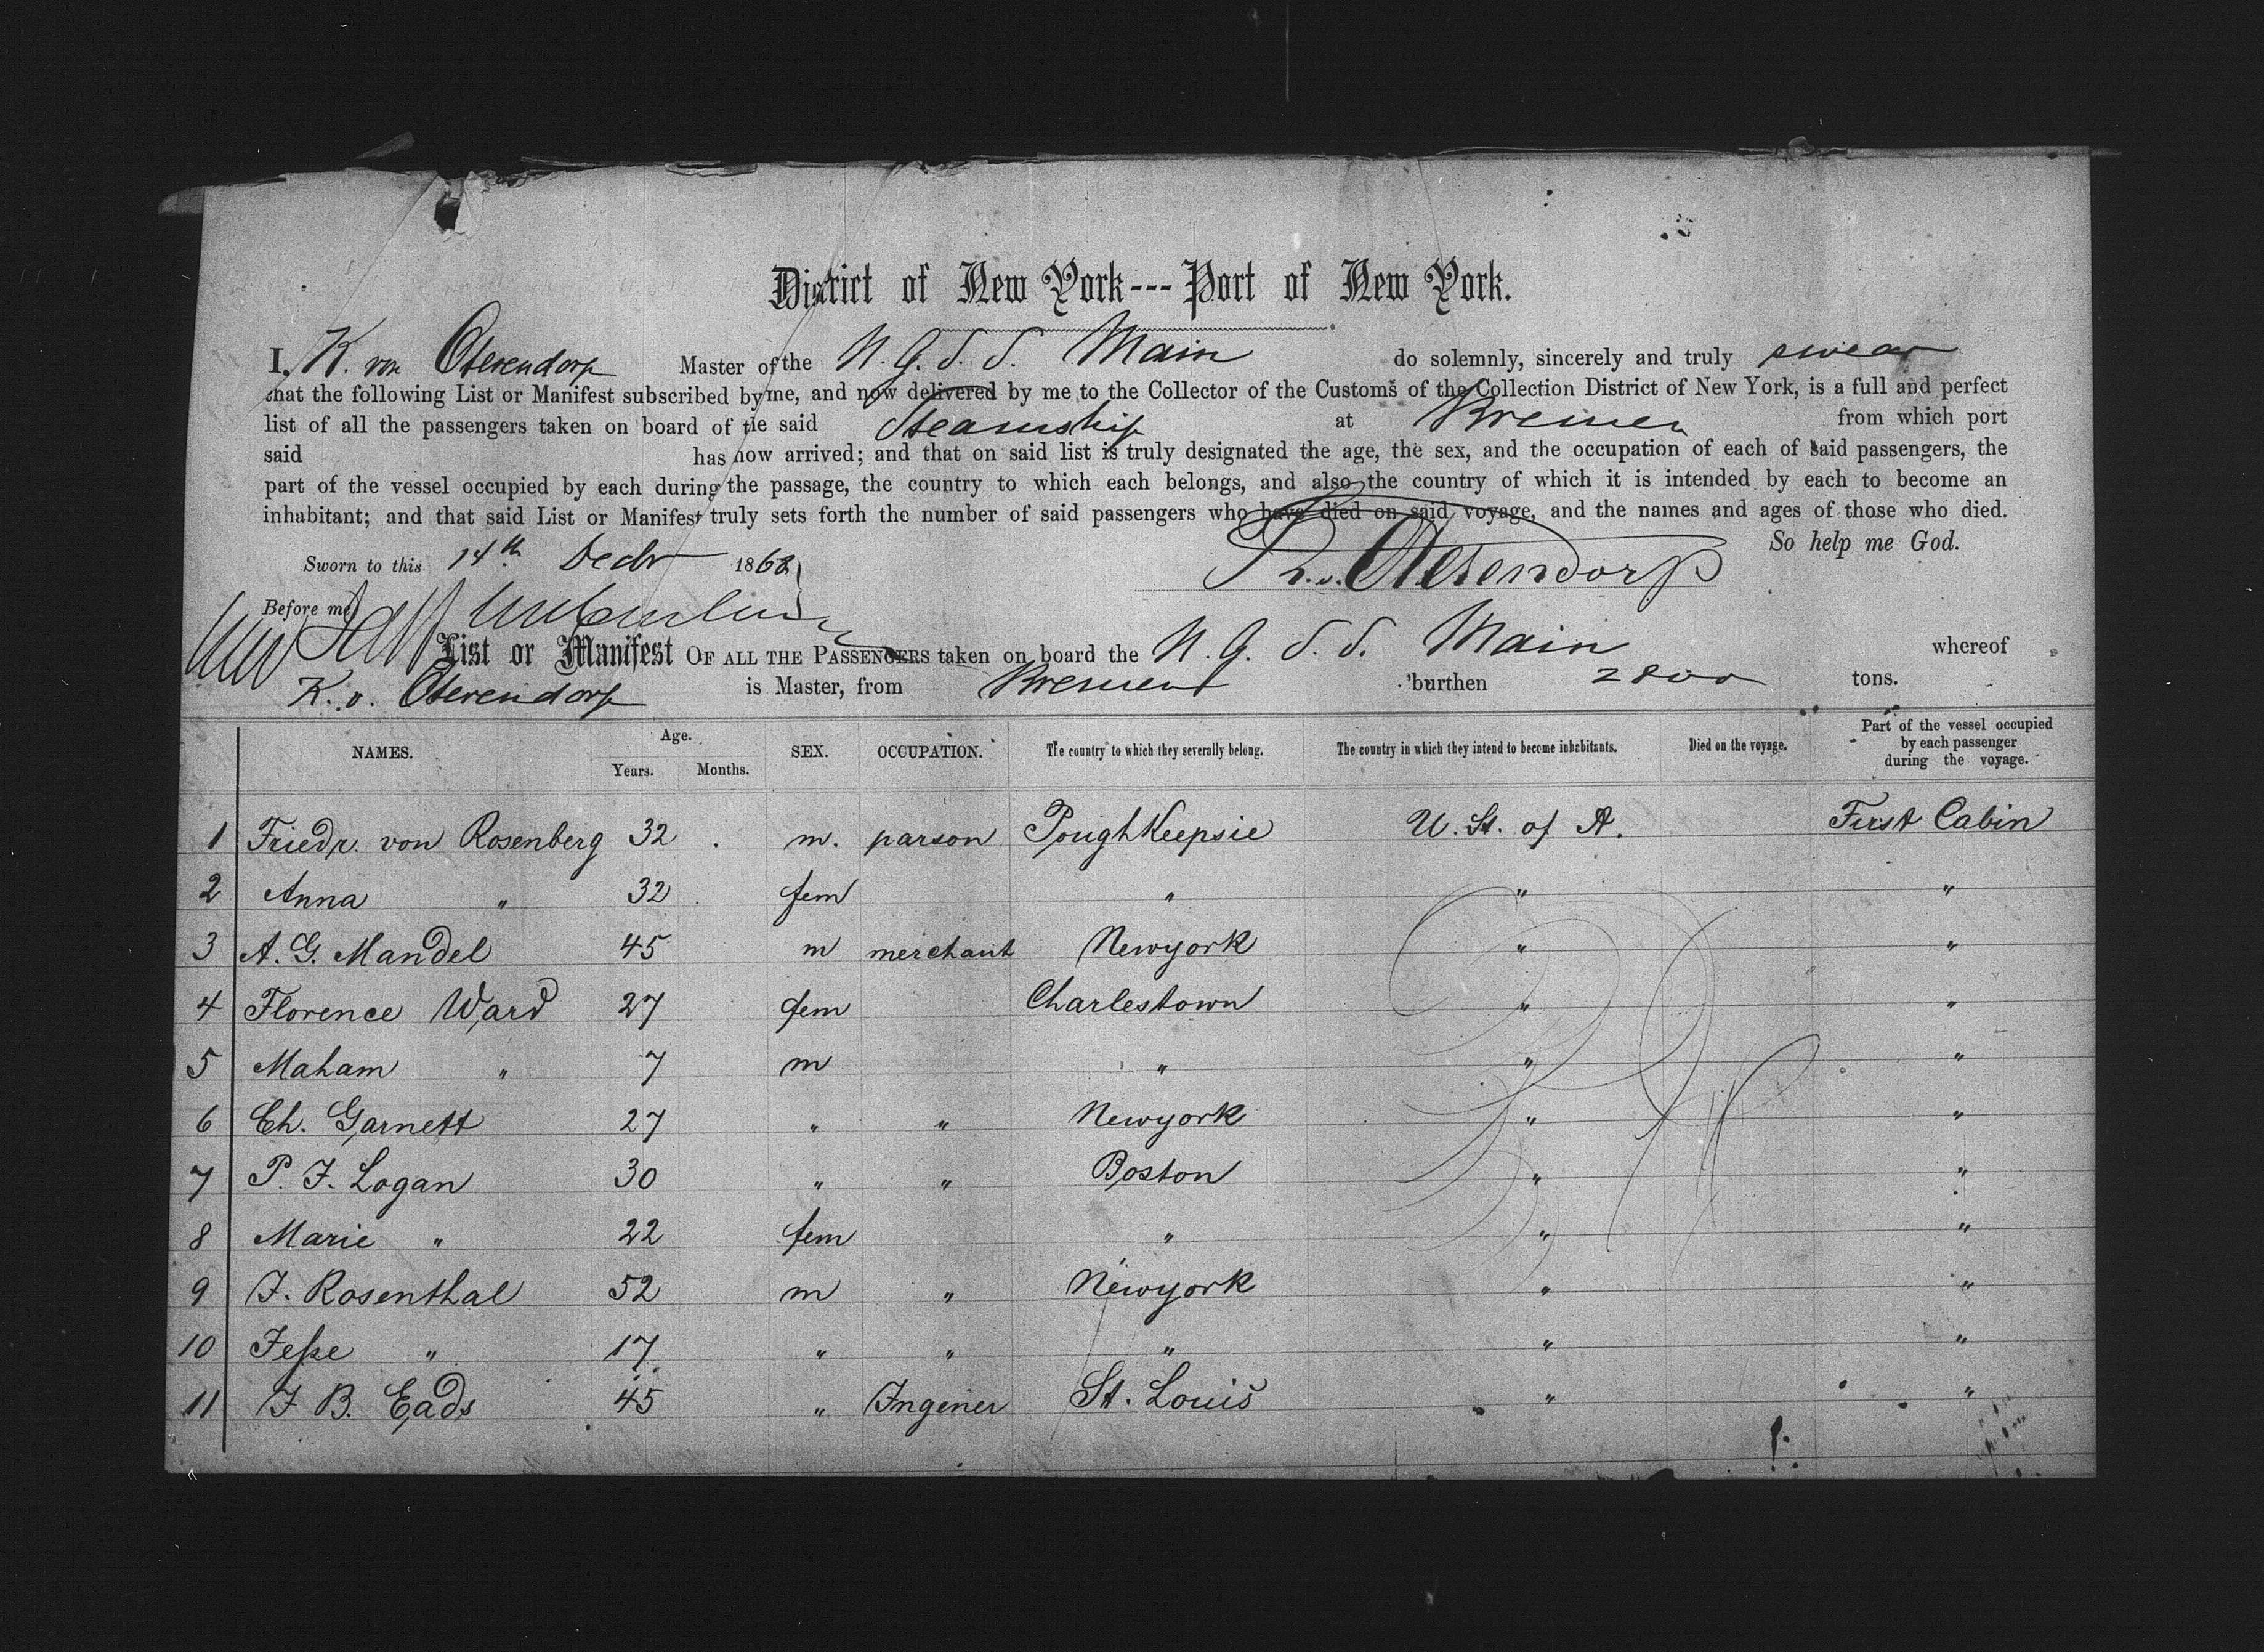 District of New York --- Port of New York.
I, K. von Oterendorp Master of the N. G. S. S. Main do solemnly, sincerely and truly swear
that the following List or Manifest subscribed by me, and now delivered by me to the Collector of the Customs of the Collection District of New York, is a full and perfect
list of all the passengers taken on board of the said Steamship at Bremen from which port
said has now arrived; and that on said list is truly designated the age, the sex, and the occupation of each of said passengers, the
part of the vessel occupied by each during the passage, the country to which each belongs, and also the country of which it is intended by each to become an
inhabitant; and that said List or Manifest truly sets forth the number of said passengers who have died on said voyage, and the names and ages of those who died.
So help me God.
Sworn to this 14th Decbr 1868
K. v. Oterendorp
Before me
List or Manifest OF ALL THE PASSENGERS taken on board the N. G. S. S. Main whereof
K. v. Oterendorp is Master, from Bremen burthen 2800 tons.
NAMES. Age. Years. Months. SEX. OCCUPATION. The country to which they severally belong. The country in which they intend to become inhabitants. Died on the voyage. Part of the vessel occupied by each passenger during the voyage.
1 Friedr. von Rosenberg 32 m. parson PoughKeepsie U. St. of A. First Cabin
2 Anna " 32 fem " " "
3 A. G. Mandel 45 m merchant Newyork " "
4 Florence Ward 27 fem Charlestown " "
5 Maham " 7 m " " "
6 Ch. Garnett 27 " " Newyork " "
7 P. F. Logan 30 " " Boston " "
8 Marie " 22 fem " " "
9 J. Rosenthal 52 m " Newyork " "
10 Jeſse " 17 " " " " "
11 J B. Eads 45 " Ingener St. Louis " "